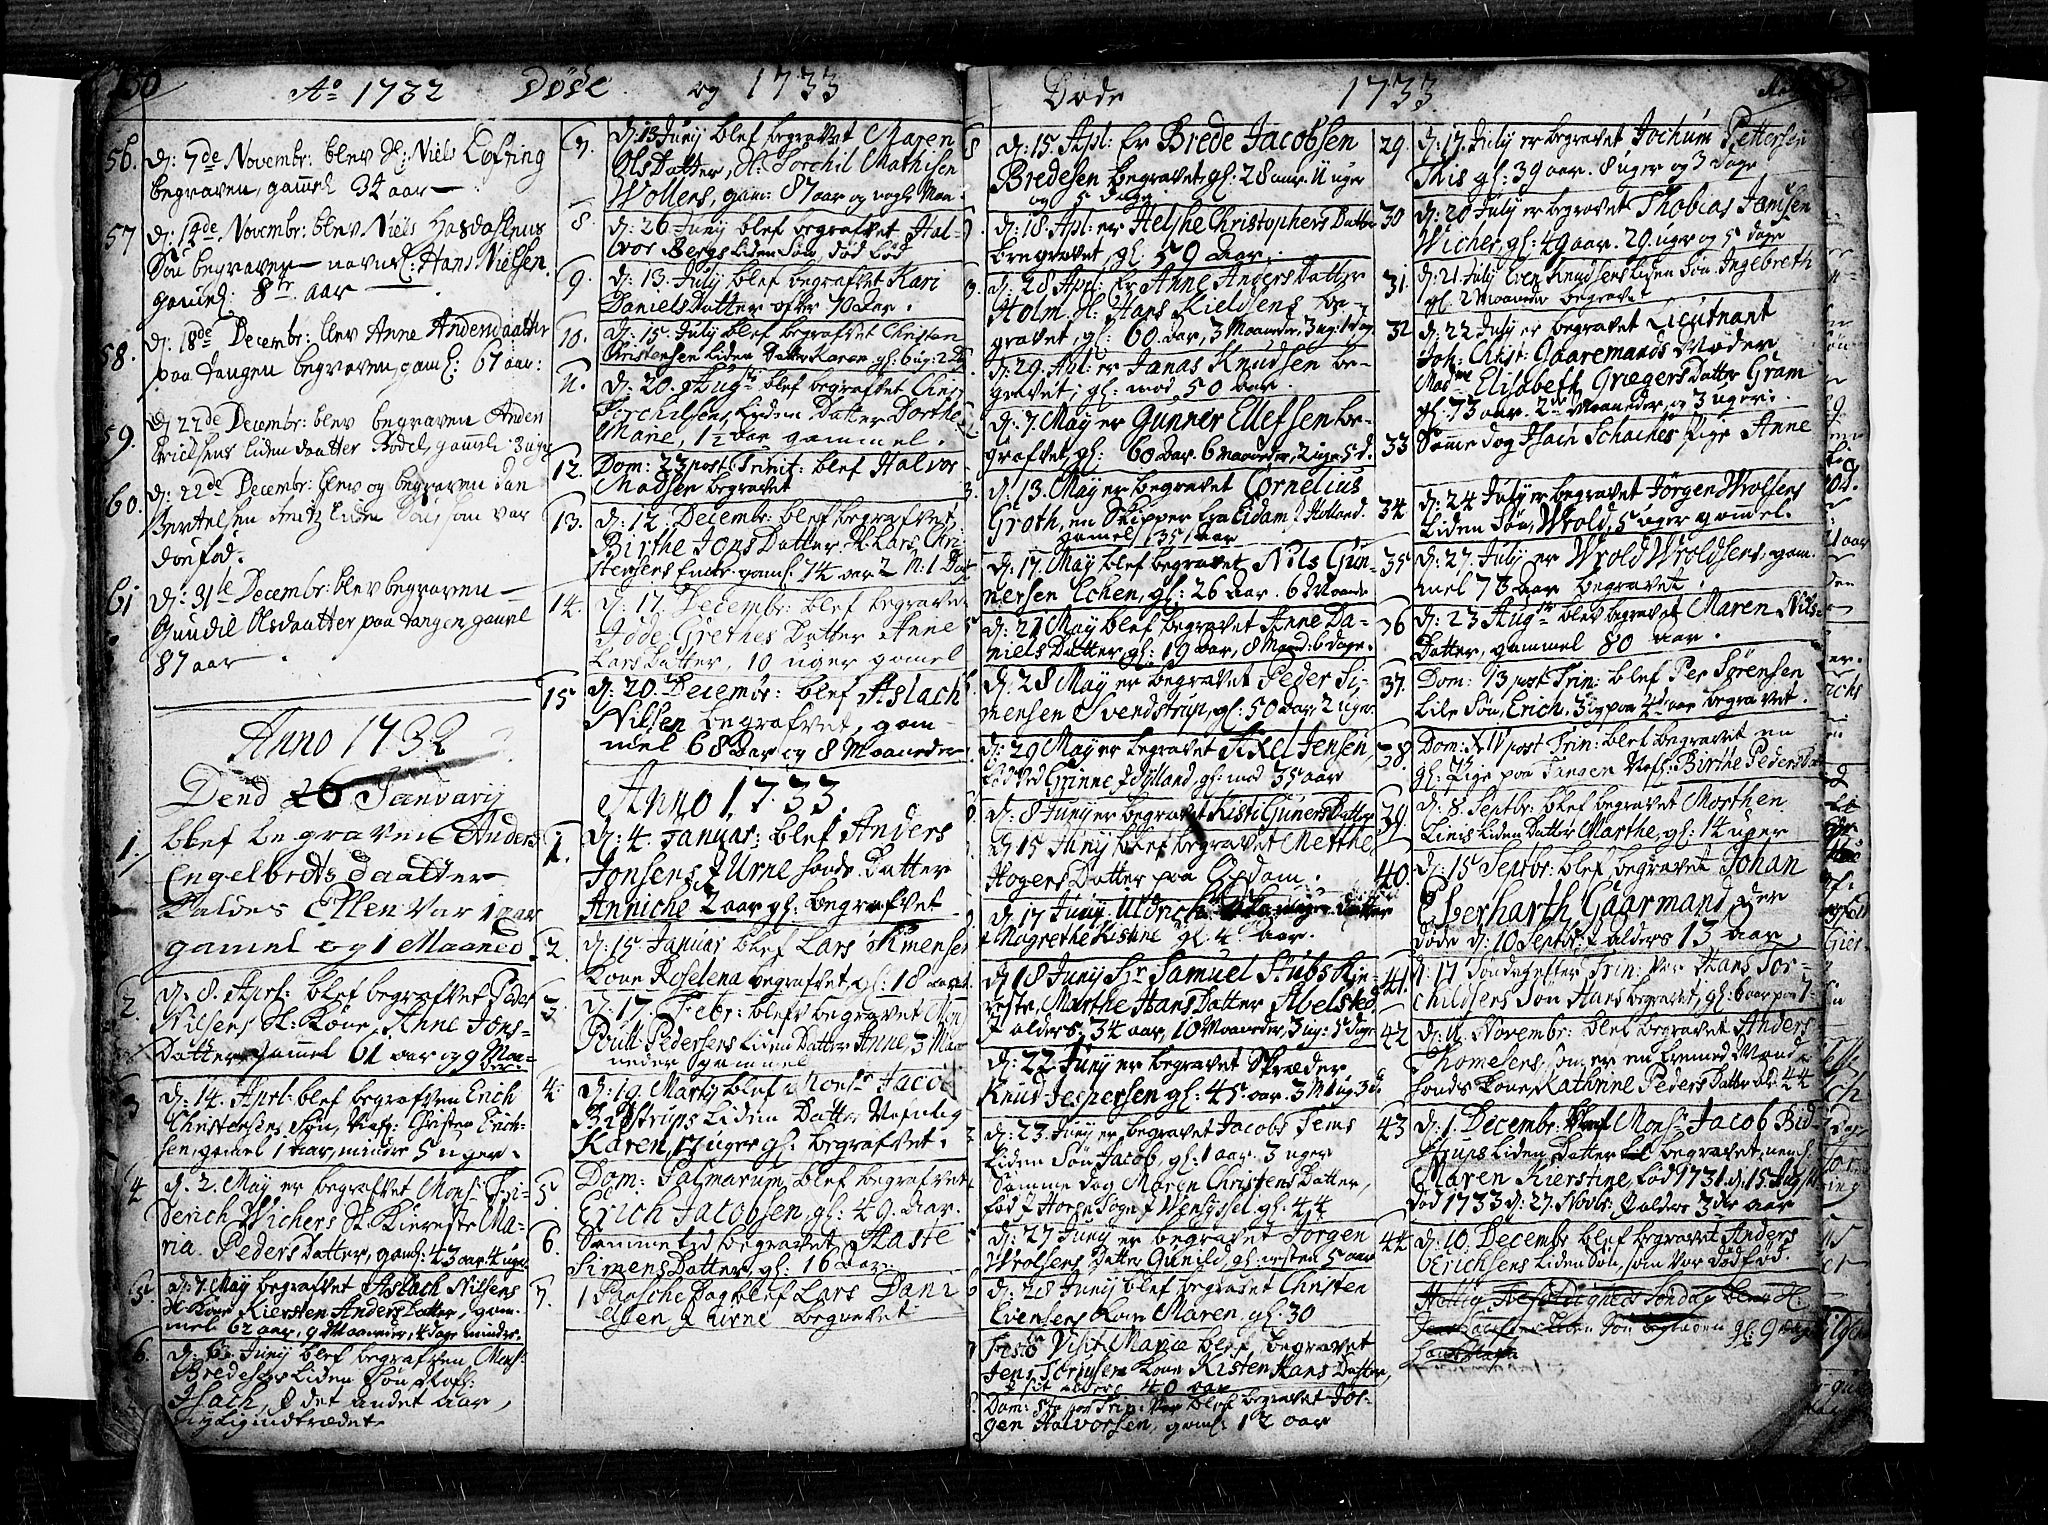 Ao 1732 Døde og 1733
56. d: 7de Novembr: blev Hr: Niels
begraven, gaml 32 aar
57 d: 19de Novembr: blev Niels
Søn begraven navnl: Hans Nielsen
gamel: 8te aar
58. d: 18de Decembr: blev Anne Andersdaatter
paa tangen begraven, gaml: 67 aar:
59. d: 22de Decembr: blev begraven Anders
Erichsens liden daatter Bodel, gaml: 3 uger
60. d: 22de Decembr: blev og begraven
Bertelsen liden Søn som var
dødfød.
61 d: 31te Decembr: blev begraven
Gundil Olsdaatter paa tangen, gamel
87 aar
Anno 1732
Dend 26 Januarij
1. blef begraven Anders
Engelbrets daatter
Kaldes Ellen var 1 aar
gamel og 1 Maaned
2. d: 8. Aprl: blef begrafvet Peder
Nilsens Sl: Kone, Anne Jons-
Datter gammel 61 aar og 9 Maa-
neder
3 d: 14. Aprl: blef begrafven Erich
Christensens Søn, Nafl: Christen Erich-
sen, gamel 1 aar, mindre 5 uger.
4 d: 2. Maÿ er begrafvet Monsr: Fri-
derich Wichers Sl: Kiereste Ma-
ria Peders Datter, gaml: 43 aar 4 uger
5 d: 7. Maÿ begrafvet Aslach Nilsens
Sl: Kone Kiersten Anders Datter, gam-
mel 62 aar, 9 Maaneder, 4 dage mindre.
6. d: 6. Junij blef begrafven Mons:
Bredesens liden Søn Nafl:
Isach, i det andet aar,
nylig indtrædet
7. d: 13 Junij blef begravet Maren
Ols Datter, Sl: Torchil Mathisen
Wollers, gam: 87 aar og nogle Maa-
8. d: 26 Junij blef begrafvet Hal-
vor Bergs liden Søn, død fød
9. d: 13. Julÿ blef begrafvet Kari
Daniels Datter ofver 70 aar.
10. d: 15. Julÿ blef begrafvet Christen
Christensen liden Datter Karen, gl: 6 ug: 2 d
11. d: 20. Augsti blef begrafvet Chris
Torchilsens, liden Datter Dorthe
Marie, 1½ aar gammel.
12. Dom: 23 post Trinit: blef Halvor
Madsen begravet
13. d: 12. Decembr: blef begrafvet
Birthe Jons Datter Sl: Lars Chri-
stensens Encke gaml. 74 aar 2 M: 1 Dag
14. d: 17. Decembr: blef begravet
Gøde Grethes Datter Anne
Lars Datter, 10 uger gamel
15 d: 20. Decembr: blef Aslach
Nilsen begrafvet, gam-
mel 68 Aar og 8 Maaneder
Anno 1733.
1. d: 4. Januar: blef Anders
Jonsens i Urne Datter
Anniche 2 aar gl: begrafvet
2. d: 15. Januar blef Lars Simensens
Kone Roselena begrafvet, gl: 18 aar
3. d: 17. Febr: blef begravet
Poul Pedersens liden Datter Anne, 3 Maa-
neder gammel
4. d: 19. Martij blef Monsr Jacob
Bidstrups liden Datter Nafnlig
Karen, 17 uger gl: begrafvet.
5. Dom: Palmarum, blef begrafvet
Erich Jacobsen, gl: 49. Aar.
6. Samme tid begravet Aaste
Simens Datter, gl: 16 aar
7. 1 Paasche Dag blef Lars Dani
elsen i Urne begravet
Døde 1733
8 d: 15. Apl: Er Brede Jacobsen
Bredesen begravet, gl: 28 aar. 11 uger
og 5 dage
9. d: 18. Apl: er Helche Christophers Datter
begravet gl: 59 Aar.
d: 28 Apl: Er Anne Anders Datter
Holm, Sl: Hans Kieldsens be-
gravet, gl: 60. aar, 3 Maaneder, 3 ug: 1 dag
d: 29. Apl: er Janas Knudsen be-
gravet; gl: mod 50 aar.
d: 7. Maÿ er Gunner Ellefsen be-
grafvet, gl: 60 Aar. 6 Maaneder, 2 uge 5 d.
d: 13. Maÿ er begravet Cornelius
Groth, en Skipper fra Eidam i Holland.
gamel 35 aar
d: 17. Maÿ blef begravet Nils Gun-
nersen Echen, gl: 26 Aar. 6 Maaneder
d: 21 Maÿ blef begravet Anne Da-
niels Datter gl: 19 aar, 8 Maand: 6 dage.
d: 28 Maÿ er begravet Peder Si-
mensen Svendstrup, gl: 50 aar 2 uger
d: 29 Maÿ er begravet Axel Jensen,
fød ved Grinne i Jylland, gl: mod 35 aar
d: 8 Junij er begravet Kisti Guners Datter
d: 15 Junij blef begravet Metthe
Hogens Datter paa Opdam.
d: 17 Junij Uldrich Datter
Magrethe Kistine gl: 4 aar.
d: 18 Junij Sr: Samuel Stubs Kie-
reste, Marthe Hans Datter Abelsted
alders 34 aar, 10 Maaneder, 3 ug: 5 dage
d: 22 Junij er begravet Skræder
Knud Jespersen gl: 45 aar. 3 M 1 ug 3 d
d: 23. Junij er begravet Jacobs Tems
liden Søn Jacob, gl: 1 aar. 3 uger
Samme dag Maren Christens Datter,
fød i Horne Sogn i Wensÿssel, gl. 44
d: 27 Junij er begravet Jørgen
Wrolsens Datter Gunild, gl: nesten 5 aar
d: 28 Junij blef begravet Christen
Evensens Kone Maren, gl: 30
Festo Visit. Mariæ blef begravet
Jens Sørensen Kone Kisten Hans Datter,
i sit alders 40 aar
Dom: 5ta post Trin: blef begravet Jør-
gen Halvorsen, gaml: 12 aar
29. d: 17. July er begravet Jochum Pettersen
This gl: 39 aar. 8 uger og 3 dage
30 d: 20 July er begravet Thobias Jamsen
Wicher, gl: 49 aar. 29. uger og 5 dage
31 d: 21 July Even Knudsens liden Søn Ingebreth
gl: 2 Maaneder begravet
32 d: 22 July er begravet Lieutnant
Joh: Christ: Gaaremands Moder
Madme Elisabeth Griegers Datter Gram
gl: 73 aar. 2de Maaneder, og 3 uger.
33 Samme dag Isach Schaches Pige Anne
34 d: 24 July er begravet Jørgen Wrolsens
liden Søn, Wrold, 5 uger gammel.
35 d: 27. July er Wrold Wroldsens, gam-
mel 73 aar begravet.
36 d: 23 Augsti blev begravet Maren Nils-
Datter, gammel 80 aar.
37. Dom: 13 post Trin: blef Per Sørensen
Lile Søn, Erich, 3 ug paa 4de aar begravet.
38. Dom: XIV post Trin: blef begravet en
gl: Pige paa Tangen Nafl: Birthe Peders Dat
39 d: 8 Septbr: blef begravet Morthen
Linis liden Datter Marthe, gl: 14 uger
40. d: 15 Septbr: blef begravet Johan
Eberharth Gaarmand, der
døde d: 10 Septbr: i alders 13 aar,
41. d: 17 Søndag efter Trin: var Hans Tor-
childsens Søn Hans begravet, gl: 6 aar paa 7-
42 d: 11. Novembr: blef begravet Anders
Thomesens, som er en fremmed Mand
hands kone, Kathrine Peders Datter al: 44
43 d: 1. Decembr: blef Monsr. Jacob Bid-
strups liden Datter begravet, neml:
Maren Kierstine, fød 1731 d: 15 Aug
død 1733 d: 27. Novbr: i alders 3die aar
44 d: 10. Decembr blef begravet Anders
Erichsens liden Søn, som var dødfød.